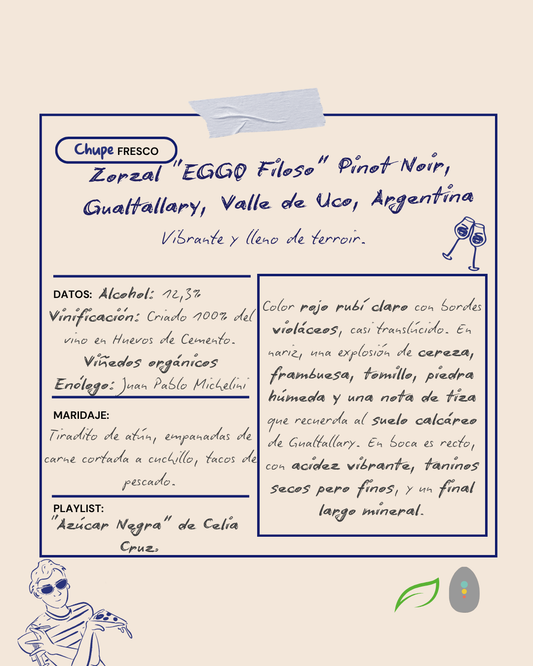 Chupe FRESCO
Zorzal "EGGO Filoso" Pinot Noir,
Gualtallary, Valle de Uco, Argentina
Vibrante y lleno de terroir.
DATOS: Alcohol: 12,3%
Vinificación: Criado 100% del
vino en Huevos de Cemento.
Viñedos orgánicos
Enólogo: Juan Pablo Michelini
MARIDAJE:
Tiradito de atún, empanadas de
carne cortada a cuchillo, tacos de
pescado.
PLAYLIST:
"Azúcar Negra" de Celia
Cruz.
Color rojo rubí claro con bordes
violáceos, casi translúcido. En
nariz, una explosión de cereza,
frambuesa, tomillo, piedra
húmeda y una nota de tiza
que recuerda al suelo calcáreo
de Gualtallary. En boca es recto,
con acidez vibrante, taninos
secos pero finos, y un final
largo mineral.